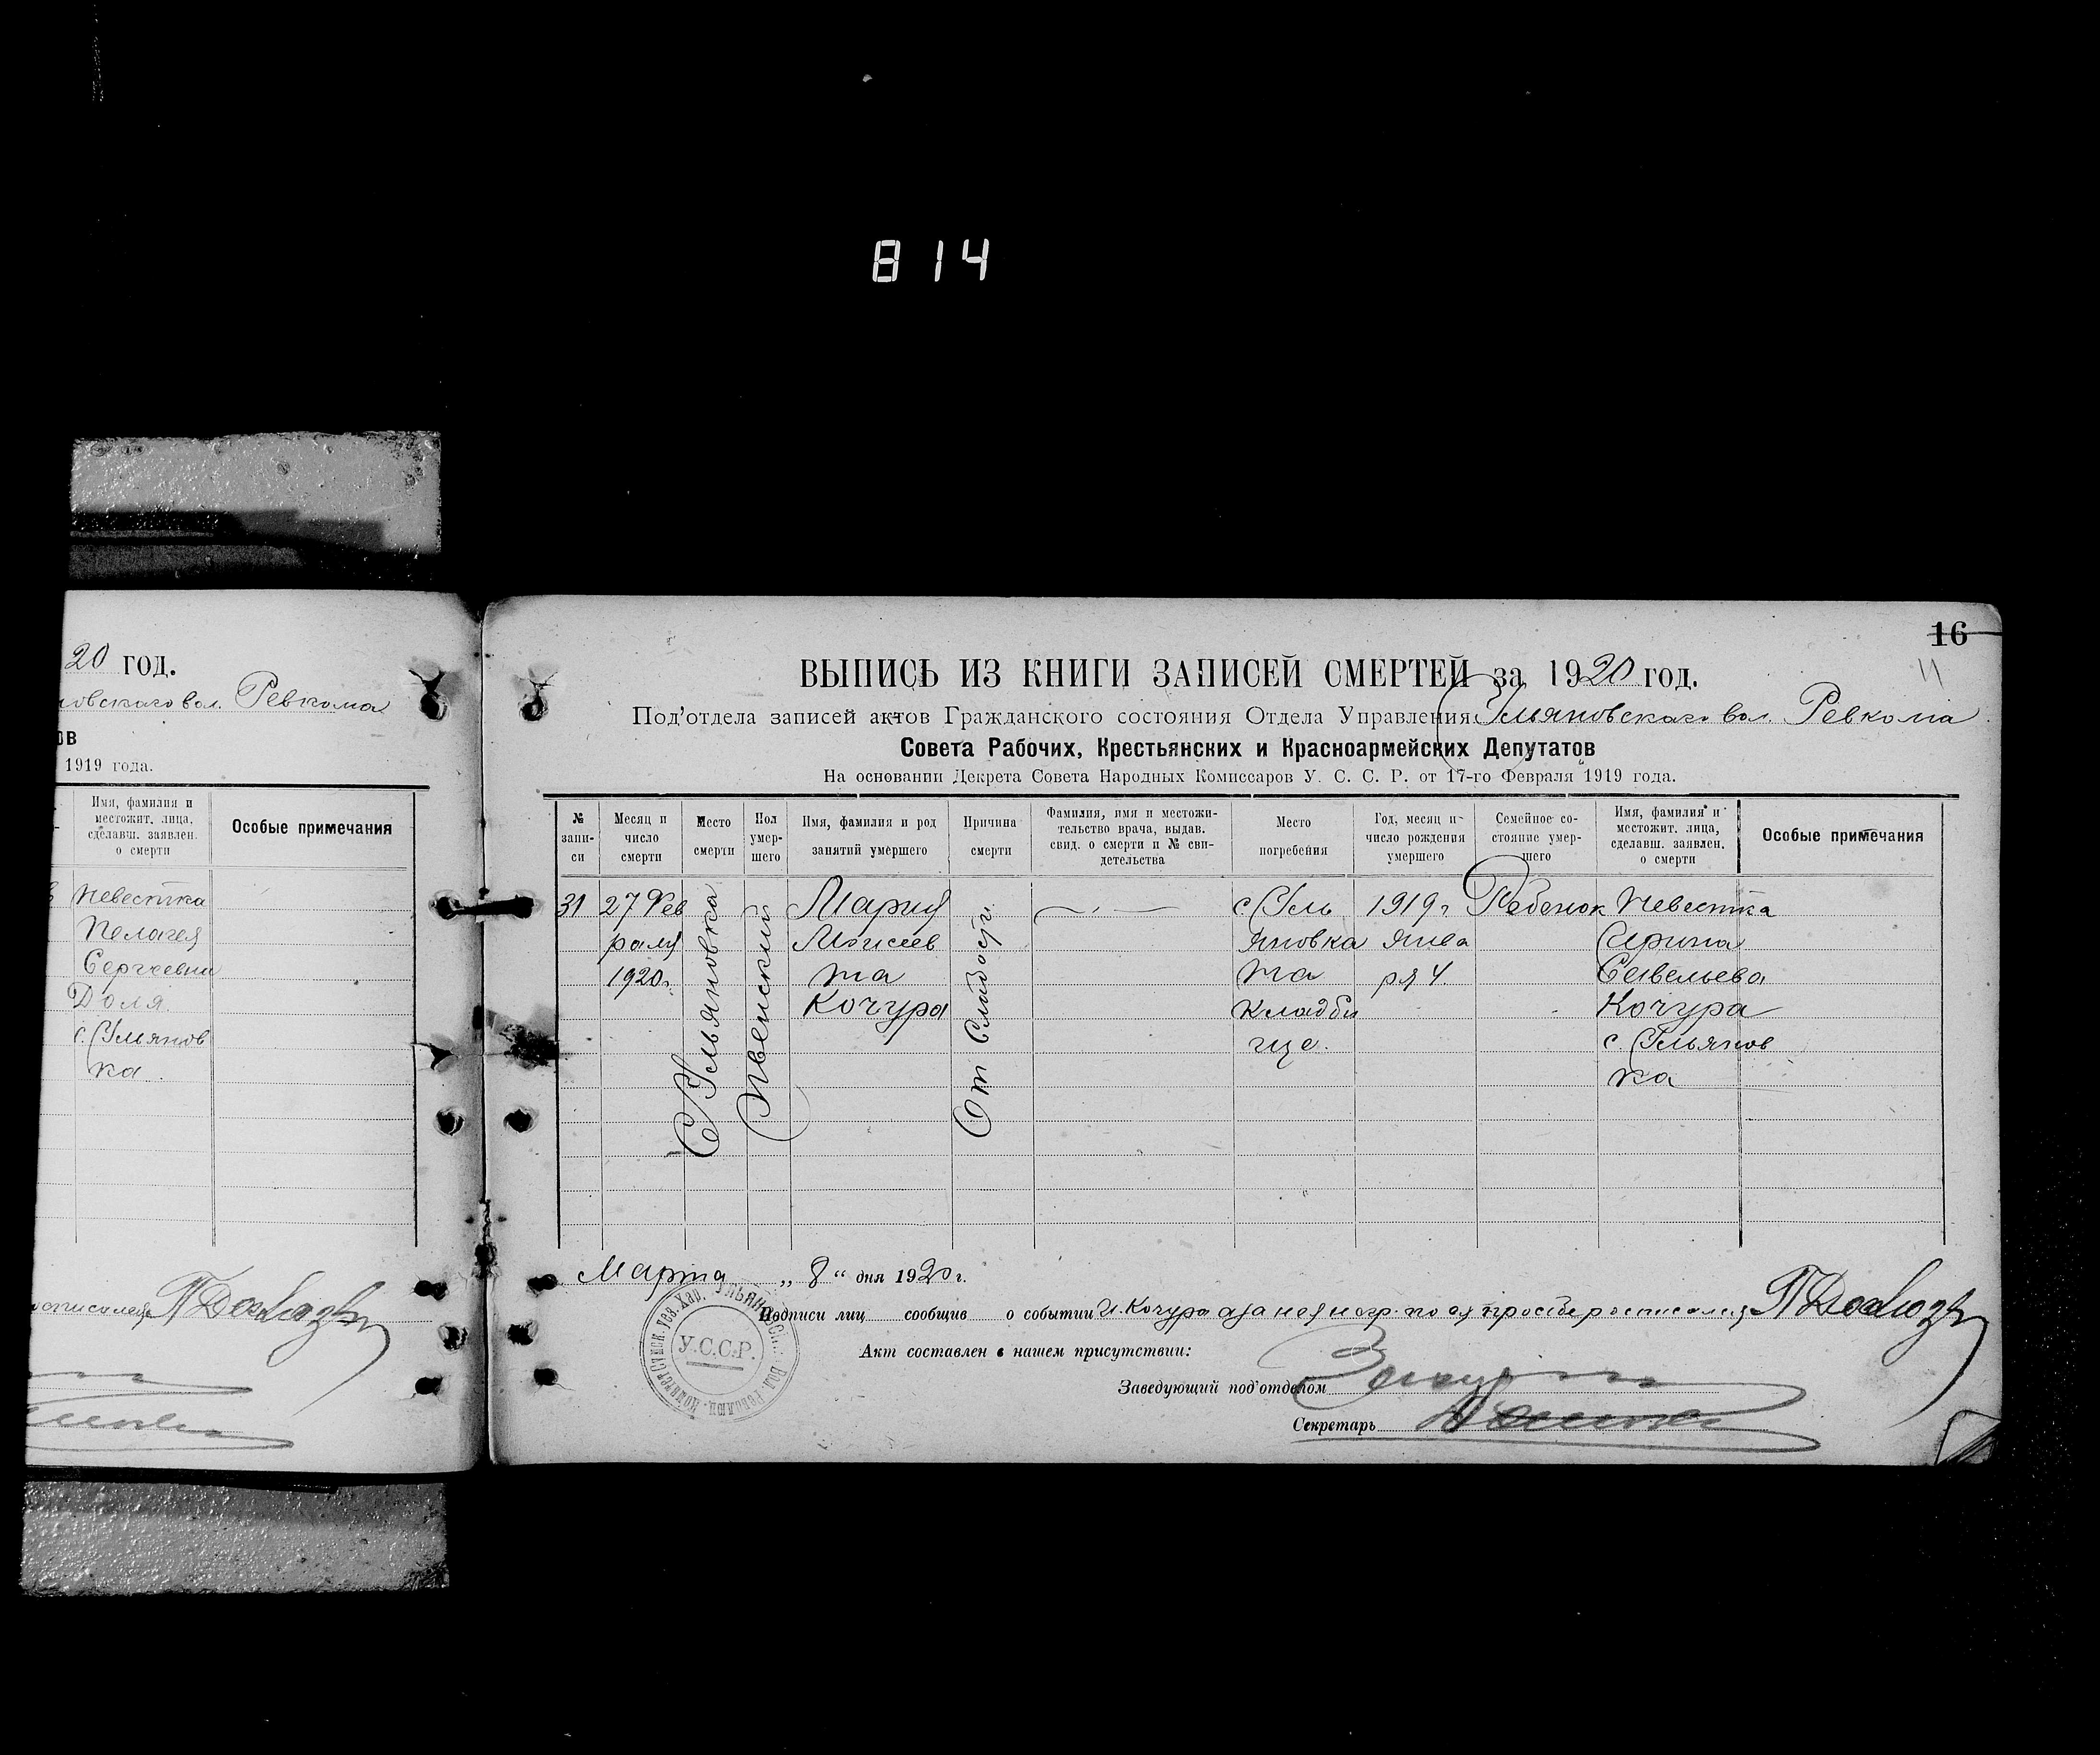 814
20 год.
новскаго вол. Ревкома
ов
1919 года.
Имя, фамилия и
местожит. лица,
сделавш. заявлен.
о смерти
Особые примечания
Невестка
Пелагея
Сергеевна
Доля
с. Ульянов
ка
16
11
ВЫПИСЬ ИЗ КНИГИ ЗАПИСЕЙ СМЕРТЕЙ за 1920 год.
Под'отдела записей актов Гражданского состояния Отдела Управления Ульяновскаго вол. Ревкома
Совета Рабочих, Крестьянских и Красноармейских Депутатов
На основании Декрета Совета Народных Комиссаров У. С. С. Р. от 17-го Февраля 1919 года.
№ запи-си
Месяц и число смерти
Место смерти
Пол умер-шего
Имя, фамилия и род занятий умершего
Причина смерти
Фамилия, имя и местожи-тельство врача, выдав. свид. о смерти и № сви-детельства
Место погребения
Год, месяц и число рождения умершего
Семейное со-стояние умер-шего
Имя, фамилия и местожит. лица, сделавш. заявлен. о смерти
Особые примечания
31
27 Фев
раля
1920г.
С Ульяновка
Женский
Мария
Моисеев
на
Кочура
От слабости
с. Уль
яновка
на
кладби
ще.
1919г
янва
ря 4.
Ребенок
Невестка
Ирина
Савельева
Кочура
с. Ульянов
ка
Марта „8“ дня 1920 г.
Подписи лиц сообщив о событии И. Кочура а за нея негр. по ея просьбе росписался
Акт составлен в нашем присутствии:
Заведующий под'отделом
Секретарь
У.С.С.Р.